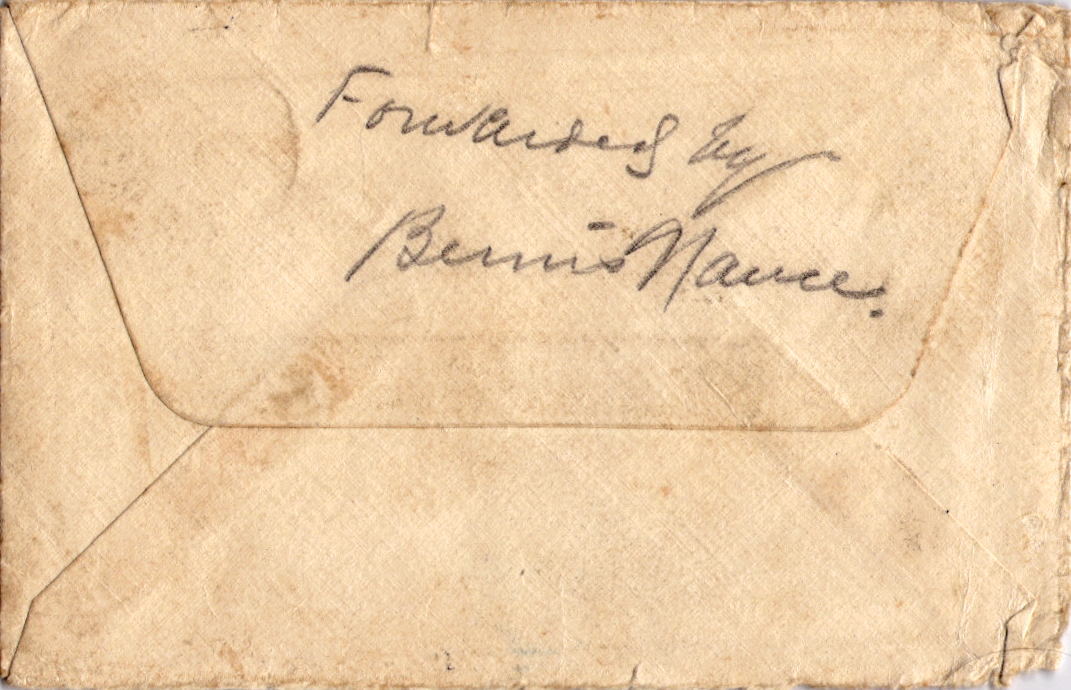 Forwarded by
Bernis Nance.